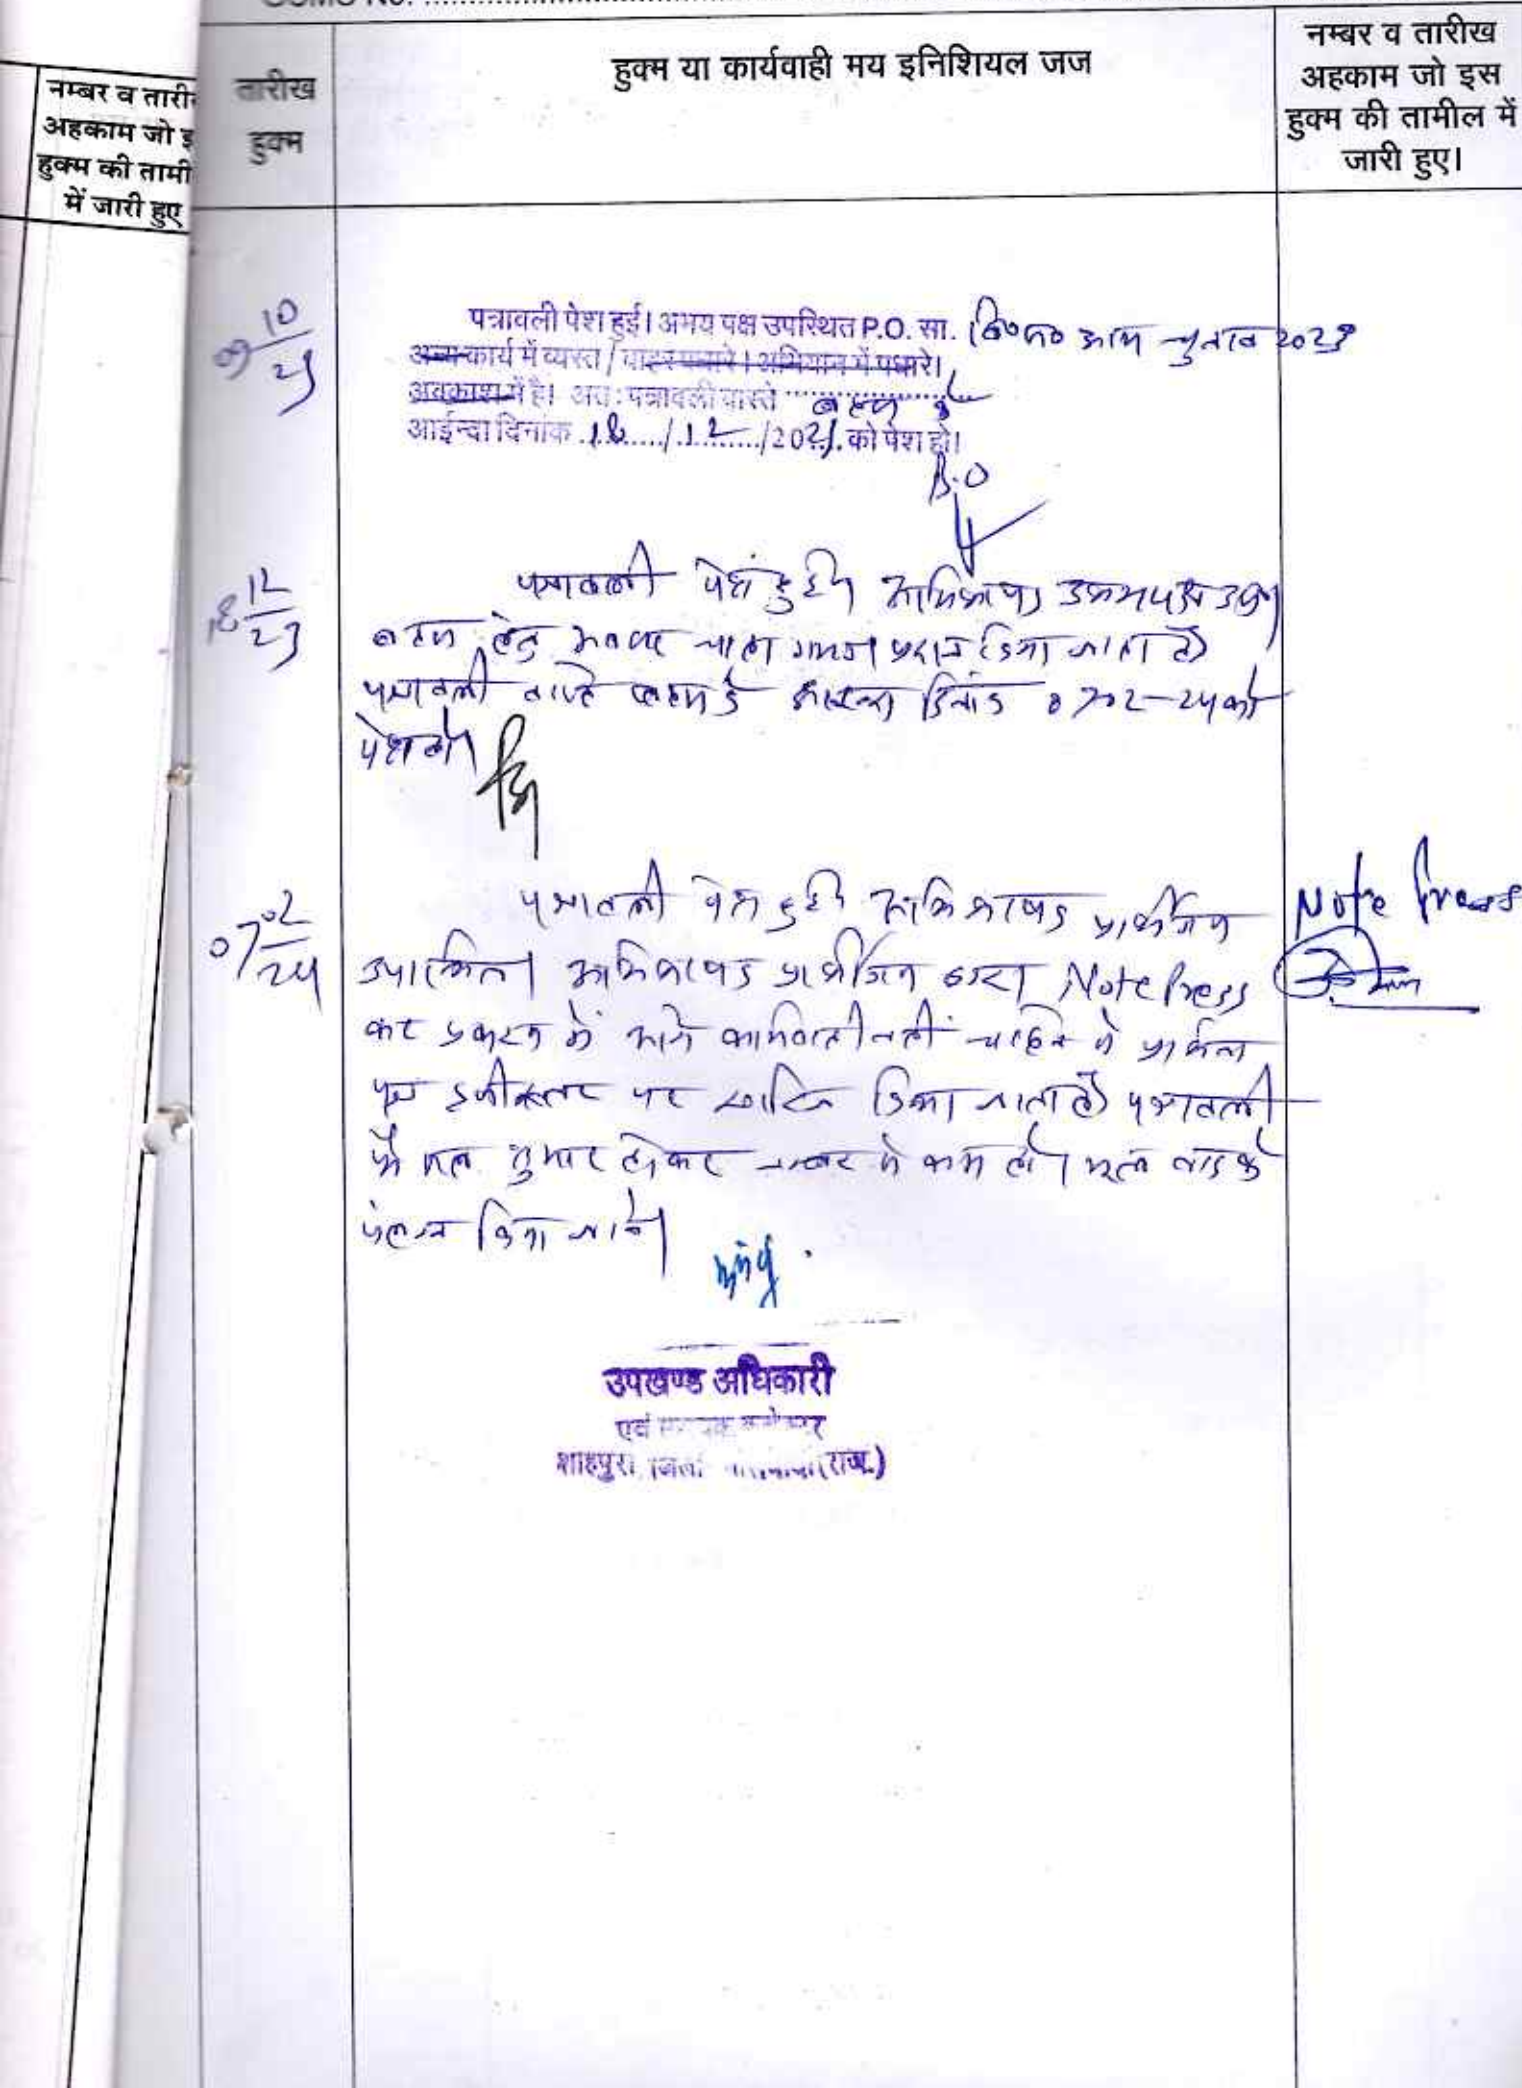 नम्बर व तारी
अहकाम जो इ
हुक्म की तामी
में जारी हुए
तारीख
हुक्म
हुक्म या कार्यवाही मय इनिशियल जज
नम्बर व तारीख
अहकाम जो इस
हुक्म की तामील में
जारी हुए।
09 10/23
पत्रावली पेश हुई। अभय पक्ष उपस्थित P.O. सा. वि०स० आम चुनाव 2023
अन्य कार्य में व्यस्त / बाहर पधारे। अभियान में पधारे।
अवकाश में है। अतः पत्रावली वास्ते बहस के
आईन्दा दिनांक 18/12/2023 को पेश हो।
18 12/23
पत्रावली पेश हुई। अभिभाषक उभयपक्ष उप।
बहस हेतु अवसर चाहा गया। प्रदान किया जाता है।
पत्रावली वास्ते बहस के आइन्दा दिनांक 07-02-24 को
पेश हो।
07 02/24
पत्रावली पेश हुई। अभिभाषक प्रार्थीगण
उपस्थित। अभिभाषक प्रार्थीगण द्वारा Note Press
कर प्रकरण में आगे कार्यवाही नहीं चाहने से प्रार्थना
पत्र इसी स्तर पर खारिज किया जाता है। पत्रावली
फैसल शुमार होकर नम्बर से कम हो। मूल वाद के
संलग्न किया जावे।
Note Press
उपखण्ड अधिकारी
एवं
शाहपुरा जिला (राज.)